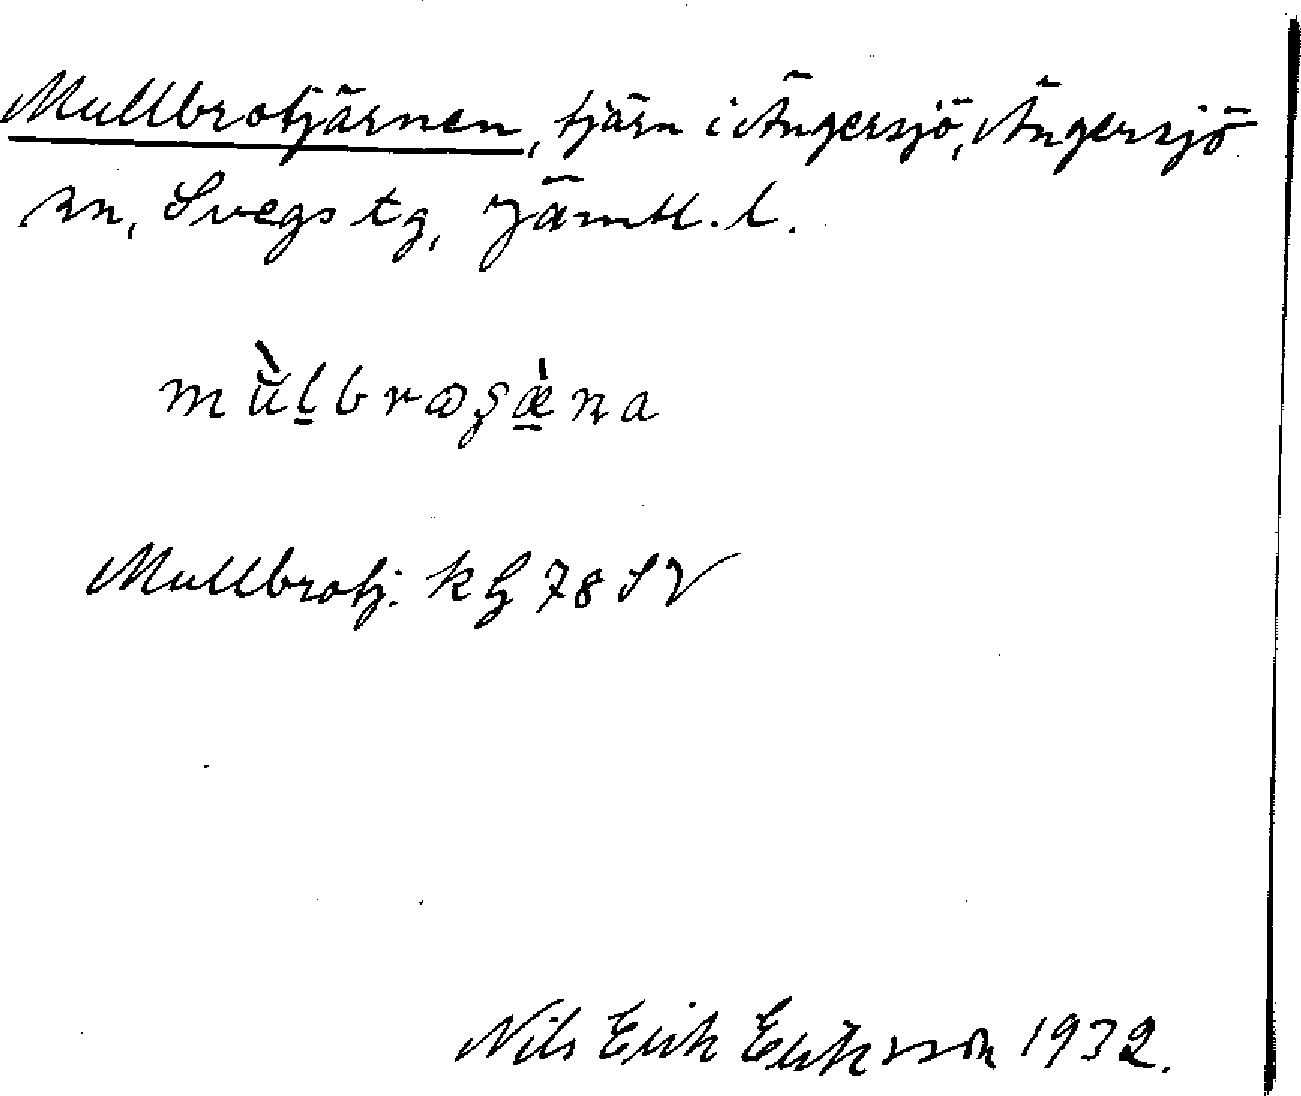 Mullbrotjärnen, tjärn i Ängersjö, Ängersjö
sn, Svegs tg, Jämtl. l.
mù̈l̠brɷʂæ̠̀ɳa
Mullbrotj. kg 78 SV
Nils Erik Eriksson 1932.